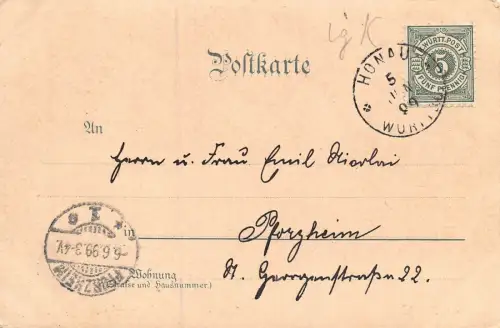 lg K
Postkarte
HONAU
5 JUN 99
WÜRTT
WÜRTT. POST
5
FÜNF PFENNIG
An
Herrn u. Frau Emil Nicolai
in
Pforzheim
PFORZHEIM
6.6.99.3-4V.
Wohnung
(Straße und Hausnummer.)
St. Georgenstraße 22.